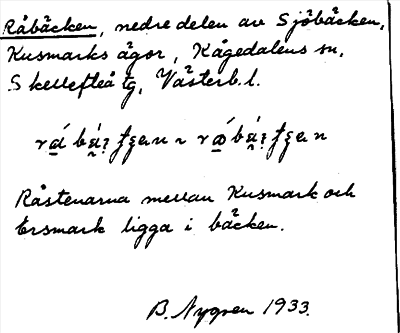 Råbäcken, nedre delen av Sjöbäcken,
Kusmarks ägor, Kågedalens sn,
Skellefteå tg, Västerb. l.
Råstenarna mellan Kusmark och
Ersmark ligga i bäcken.
B. Nygren 1933.